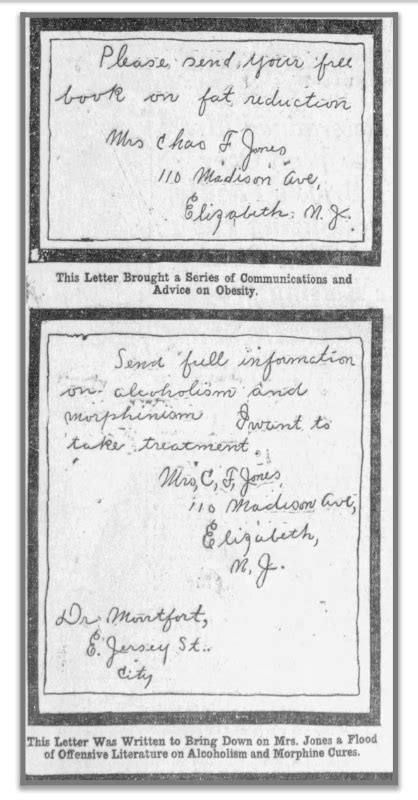 Please send your free
book on fat reduction
Mrs Chas F Jones
110 Madison Ave,
Elizabeth. N. J.
This Letter Brought a Series of Communications and
Advice on Obesity.
Send full information
on alcoholism and
morphinism I want to
take treatment.
Mrs, C, F, Jones,
110 Madison Ave,
Elizabeth,
N. J.
Dr Montfort,
E. Jersey St..
City
This Letter Was Written to Bring Down on Mrs. Jones a Flood
of Offensive Literature on Alcoholism and Morphine Cures.